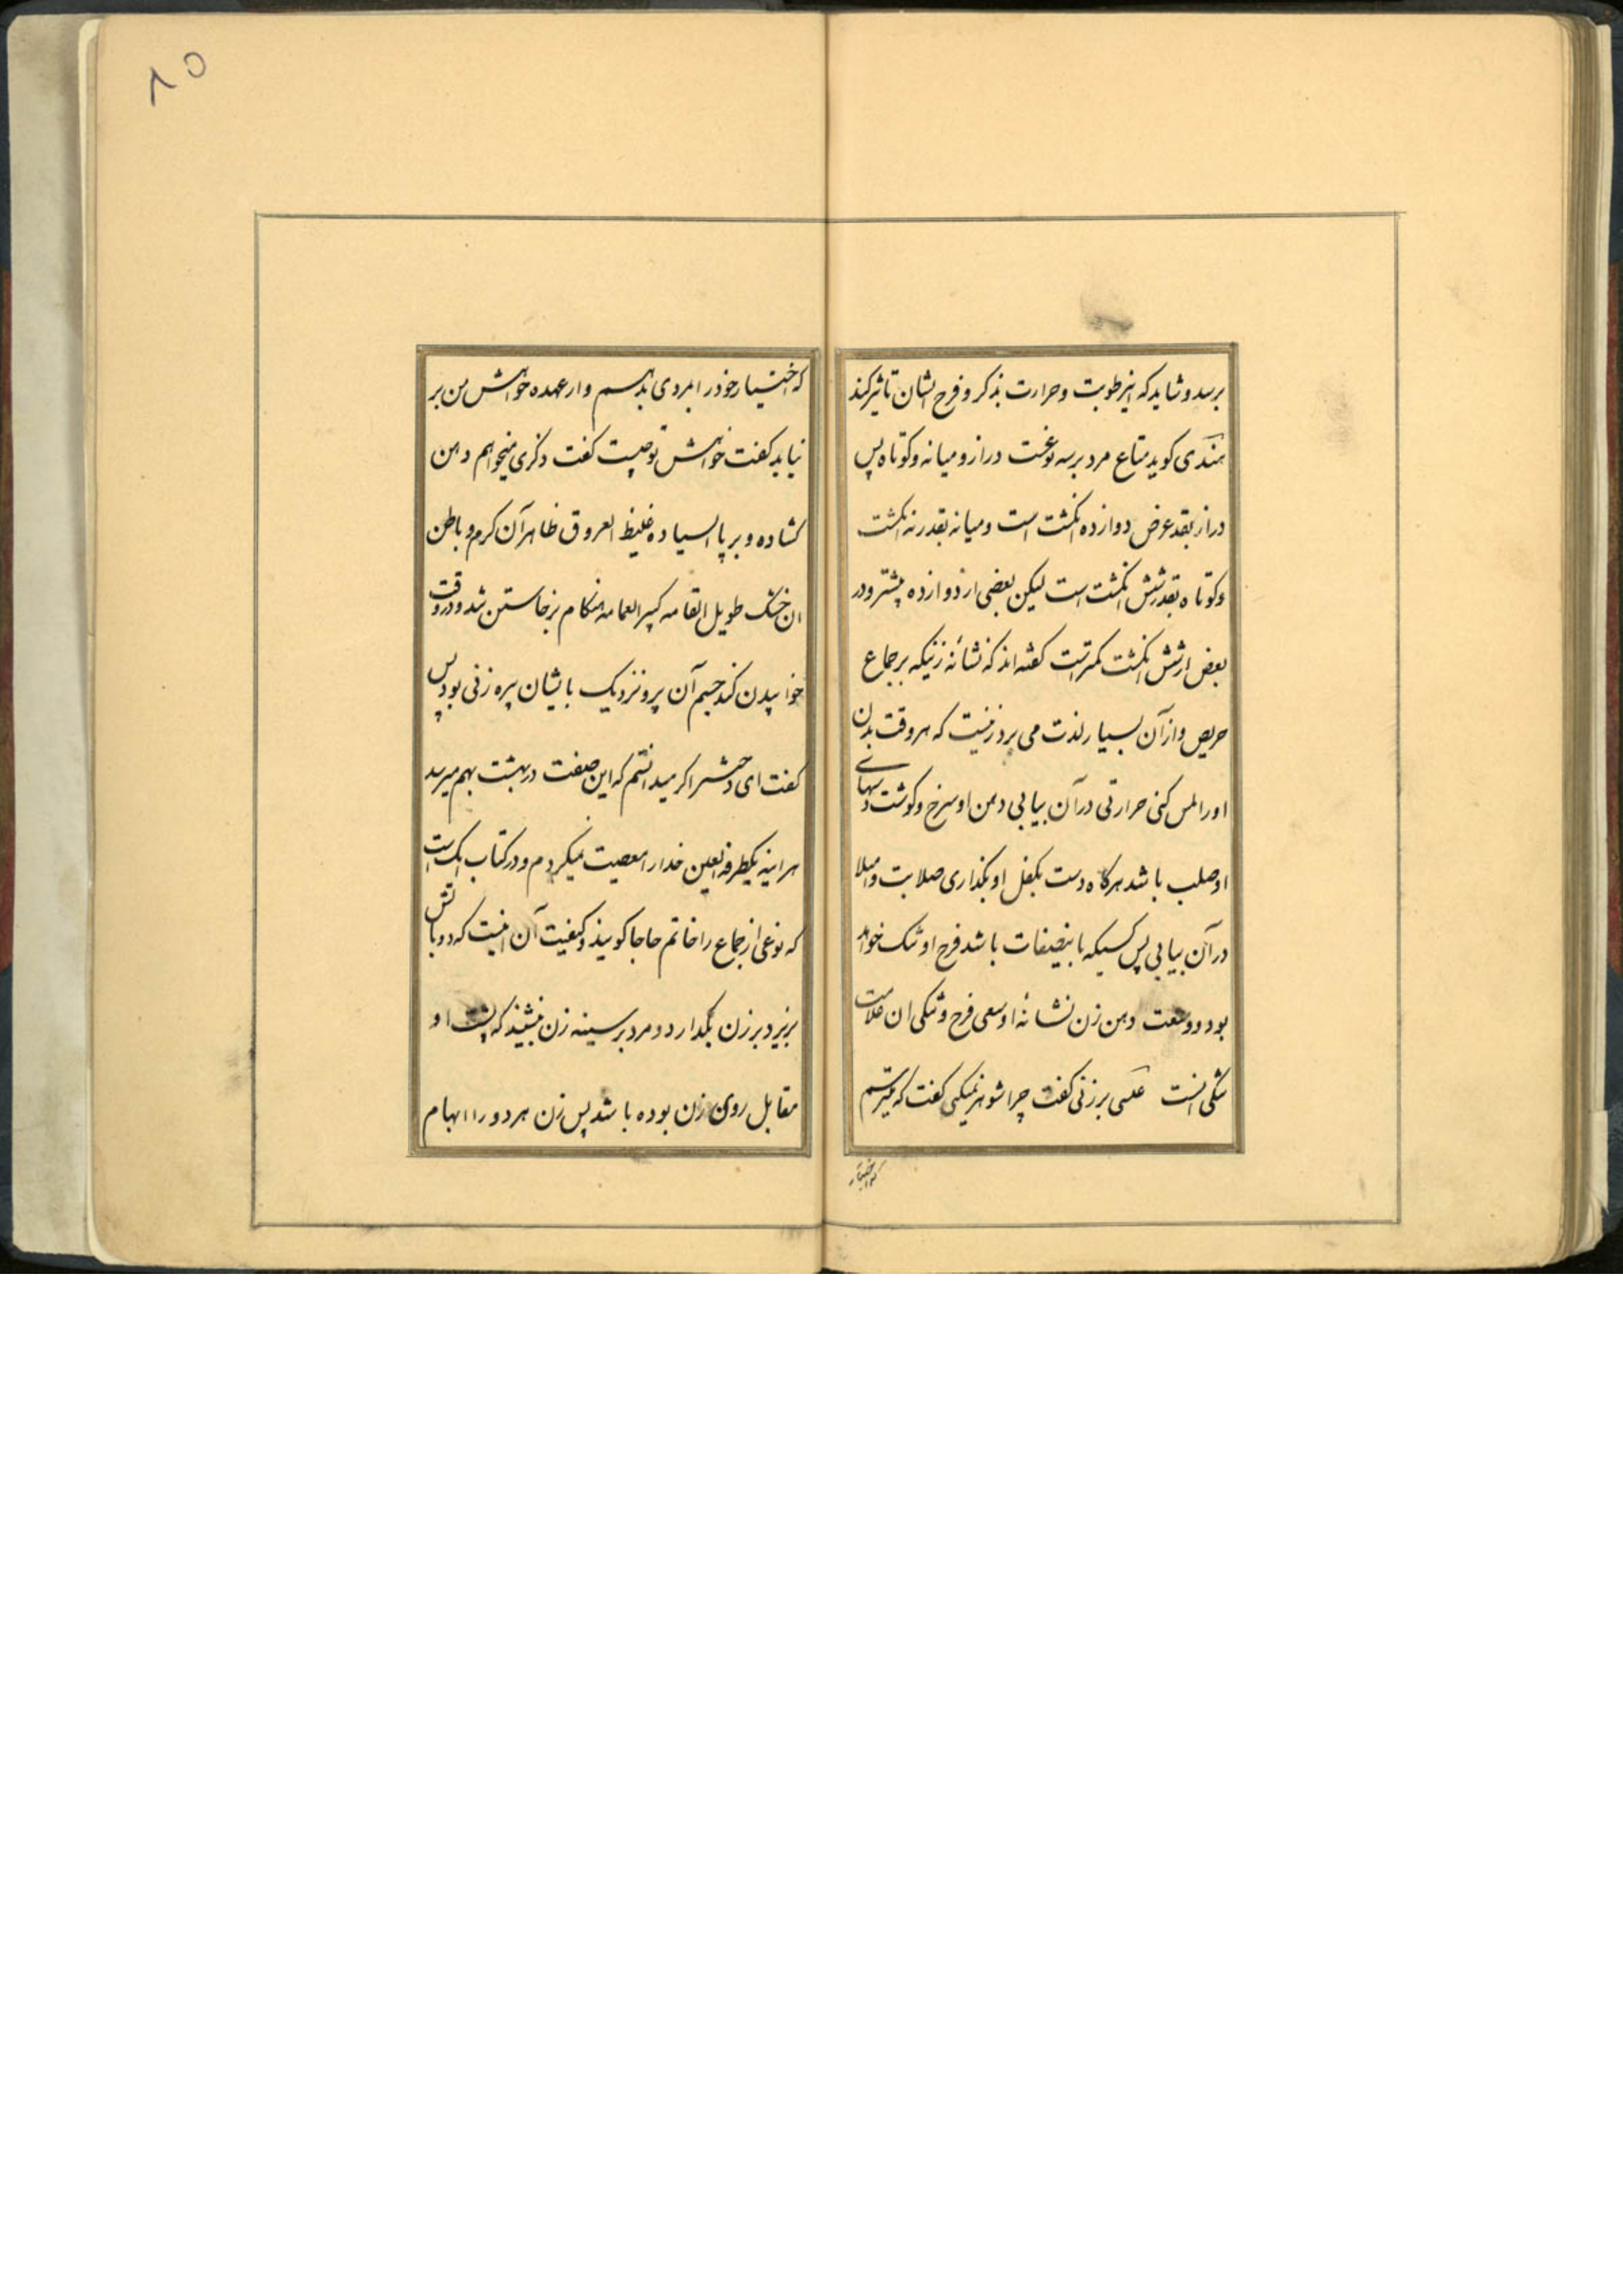 برسد و شاید که اینرطوبت و حرارت بذکر و فرج ایشان تاثیر کند
هندی کوید متاع مرد بر سه نوعست دراز و میانه و کوتاه پس
دراز بقدر عرض دوازده انکشت است و میانه بقدر نه انکشت
و کوتاه بقدر شش انکشت است لیکن بعضی از دوازده بیشتر و در
بعض از شش انکشت کمتر است کفته اند که نشانه زنیکه بر جماع
حریص و از آن بسیار لذت می برد زنیست که هر وقت بدن
او را لمس کنی حرارتی در آن بیابی دهن او سرخ و کوشت
او صلب باشد هرکاه دست بکفل او بکذاری صلابت و امتلا
در آن بیابی پس کسیکه باینصفات باشد فرج او تنک خواهد
بود و وسعت دهن زن نشانه اوسعی فرج و تنکی آن علامت
تنکی انست عکسی بر زنی کفت چرا شوهر نمیکنی کفت که میترسم
که اختیار
۸۵
که اختیار خود را بمردی بدهم و از عهده خواهش من بر
نیاید کفت خواهش تو چیست کفت ذکری میخواهم دهن
کشاده و بر پا ایستاده غلیظ العروق ظاهر آن کرم و باطن
ان خشک طویل القامه کبیر العمامه هنکام برخاستن شد و در وقت
خوابیدن کند جسم آن پر و نزدیک بایشان پیره زنی بود پس
کفت ای دختر اکر میدانستم که این صفت در بهشت بهم میرسد
هر اینه یکطرفة العین خدا را معصیت نمیکردم و در کتاب الک است
که نوعی از جماع را خاتم حاجا کویند و کیفیت آن اینست که دو بالش
بزیر دبر زن بکذارد و مرد بر سینه زن بنشیند که پشت او
مقابل روی زن بوده باشد پس زن هر دو را ابهام